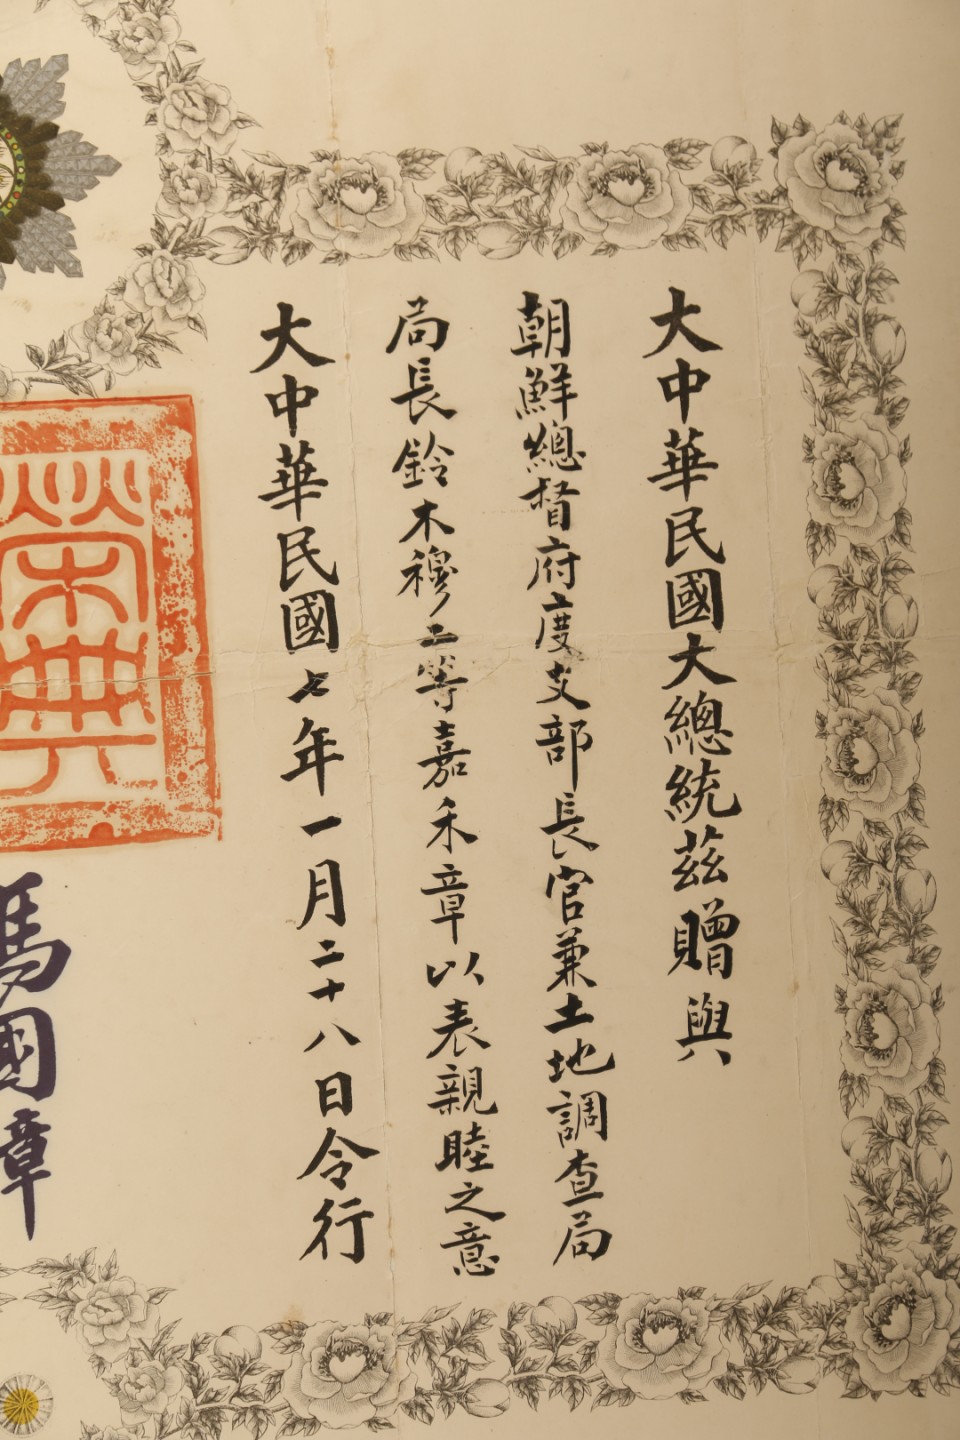 大中華民國大總統茲贈與
朝鮮總督府度支部長官兼土地調查局
局長鈴木穆二等嘉禾章以表親睦之意
大中華民國七年一月二十八日令行
榮典
國章